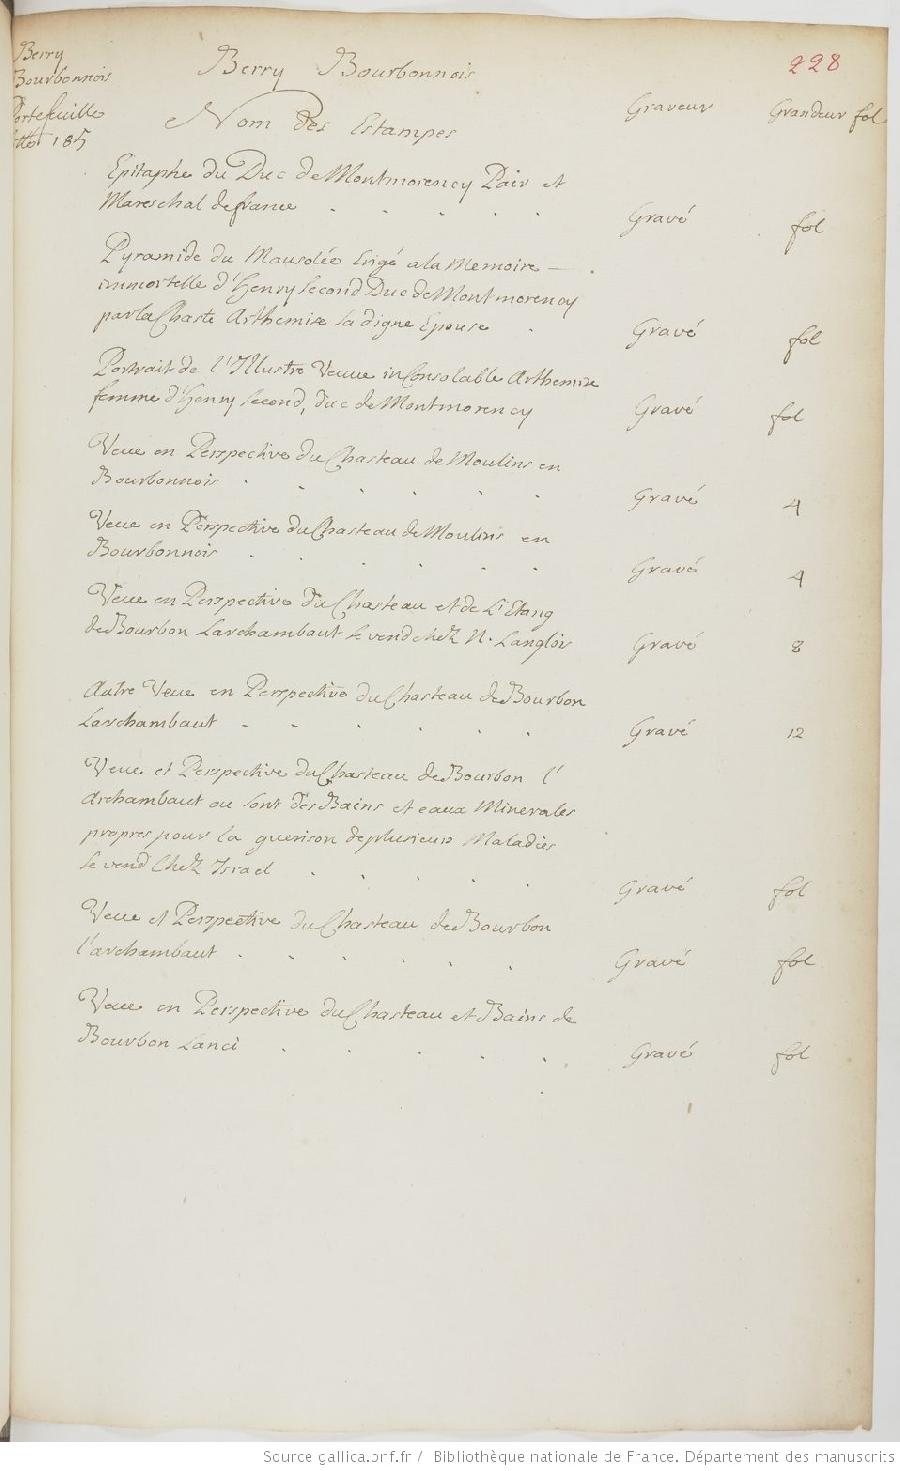 Berry
Bourbonnois
Portefeuille
185
Berry Bourbonnois
228
Nom Des Estampes
Graveur
Grandeur fol
Epitaphe du Duc de Montmorency Pair et
Mareschal de france . . . . . Gravé fol
Pyramide du Mausolée Erigé a la Memoire —
immortelle d'Henry Second Duc de Montmorency
par la Chaste Arthemise sa digne Epouse . Gravé fol
Portrait de l'Illustre Veuue inConsolable Arthemise
femme d'Henry Second, duc de Montmorency Gravé fol
Veue en Perspective du Chasteau de Moulins en
Bourbonnois . . . . . . Gravé 4
Veue en Perspective du Chasteau de Moulins en
Bourbonnois . . . . . . Gravé 4
Veue en Perspective du Chasteau et de L'Etang
de Bourbon Larchambaut se vend chez N. Langlois Gravé 8
Autre Veue en Perspective du Chasteau de Bourbon
Larchambaut . . . . . . Gravé 12
Veue et Perspective du Chasteau de Bourbon l'
Archambaut ou sont des Bains et eaux Minerales
propres pour la guerison de plusieurs Maladies
se vend Chez Israel . . . . Gravé fol
Veue et Perspective du Chasteau de Bourbon
l'archambaut . . . . . . Gravé fol
Veue en Perspective du Chasteau et Bains de
Bourbon Lanci . . . . . Gravé fol
Source gallica.bnf.fr / Bibliothèque nationale de France. Département des manuscrits